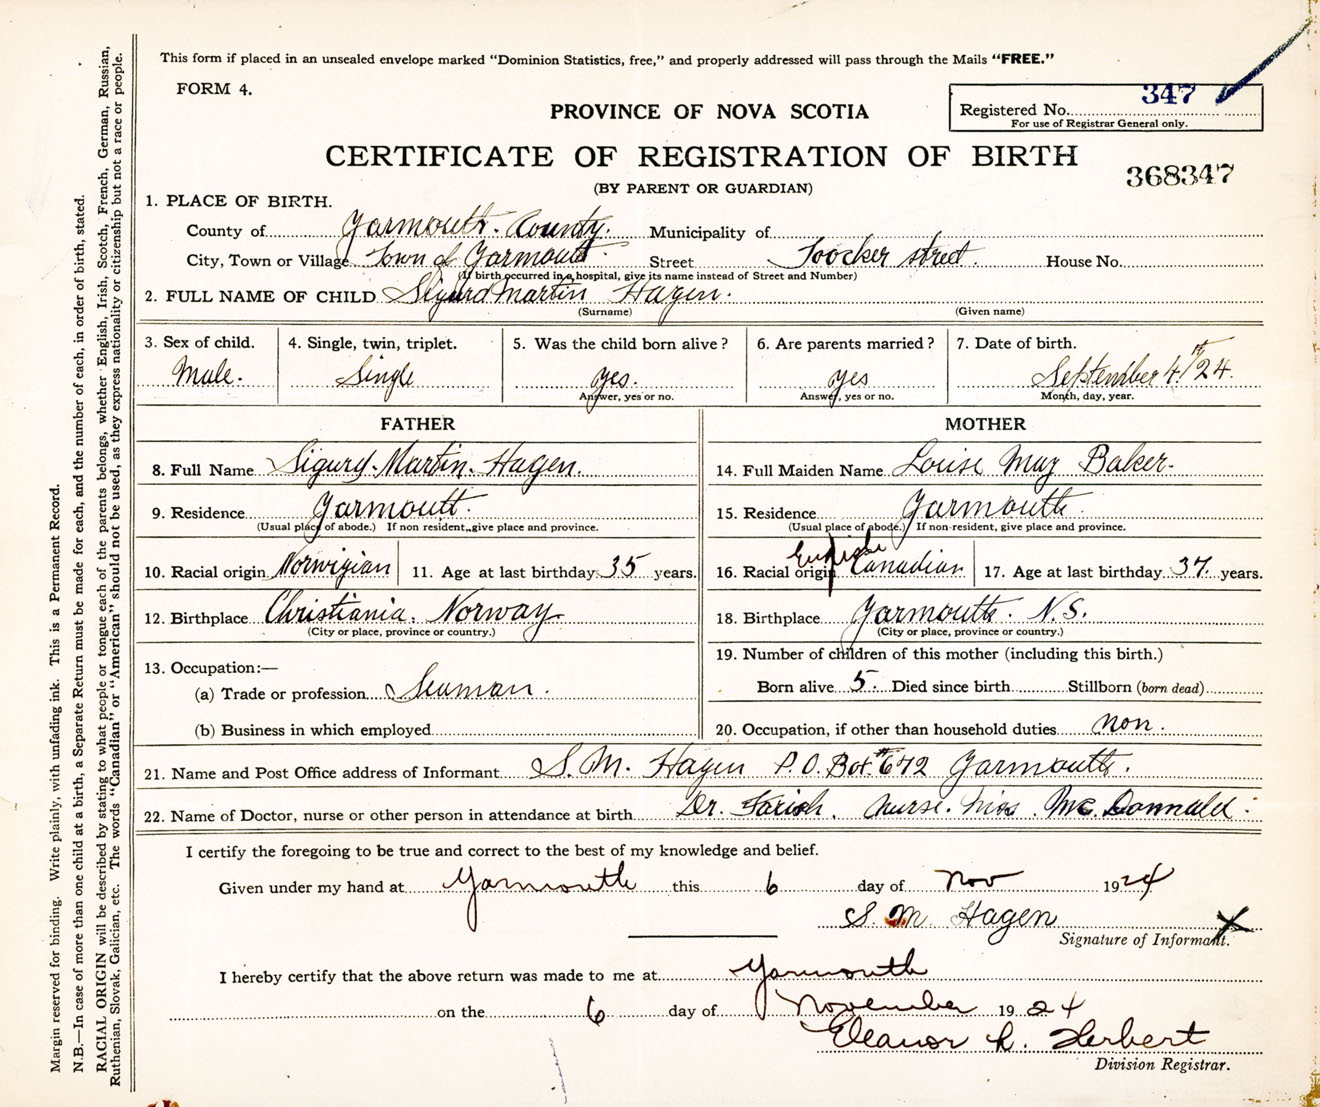 This form if placed in an unsealed envelope marked "Dominion Statistics, free," and properly addressed will pass through the Mails "FREE."
FORM 4.
PROVINCE OF NOVA SCOTIA
Registered No. 347
For use of Registrar General only.
CERTIFICATE OF REGISTRATION OF BIRTH
368347
(BY PARENT OR GUARDIAN)
1. PLACE OF BIRTH.
County of Yarmouth. County. Municipality of
City, Town or Village Town of Yarmouth. Street Toocker street. House No.
(If birth occurred in a hospital, give its name instead of Street and Number)
2. FULL NAME OF CHILD Sigurd Martin Hagen.
(Surname) (Given name)
3. Sex of child. 4. Single, twin, triplet. 5. Was the child born alive? 6. Are parents married? 7. Date of birth.
Male. Single yes. yes September 4th/24.
Answer, yes or no. Answer, yes or no. Month, day, year.
FATHER MOTHER
8. Full Name Sigurd. Martin. Hagen. 14. Full Maiden Name Louise May Baker.
9. Residence Yarmouth. 15. Residence Yarmouth.
(Usual place of abode.) If non resident, give place and province. (Usual place of abode.) If non-resident, give place and province.
10. Racial origin Norwigian 11. Age at last birthday 35 years. 16. Racial origin English Canadian. 17. Age at last birthday 37. years.
12. Birthplace Christiania. Norway. 18. Birthplace Yarmouth. N.S.
(City or place, province or country.) (City or place, province or country.)
13. Occupation:— 19. Number of children of this mother (including this birth.)
(a) Trade or profession Seaman. Born alive 5. Died since birth Stillborn (born dead)
(b) Business in which employed 20. Occupation, if other than household duties non.
21. Name and Post Office address of Informant S. M. Hagen P.O. Box #672 Yarmouth.
22. Name of Doctor, nurse or other person in attendance at birth Dr. Farish. Nurse. Miss. Mc. Donnald.
I certify the foregoing to be true and correct to the best of my knowledge and belief.
Given under my hand at Yarmouth this 6 day of Nov 1924
S. M. Hagen X
Signature of Informant.
I hereby certify that the above return was made to me at Yarmouth
on the 6 day of November 1924
Eleanor L. Herbert
Division Registrar.
Margin reserved for binding. Write plainly, with unfading ink. This is a Permanent Record.
N.B.—In case of more than one child at a birth, a Separate Return must be made for each, and the number of each, in order of birth, stated.
RACIAL ORIGIN will be described by stating to what people or tongue each of the parents belongs, whether English, Irish, Scotch, French, German, Russian,
Ruthenian, Slovak, Galician, etc. The words "Canadian" or "American" should not be used, as they express nationality or citizenship but not a race or people.